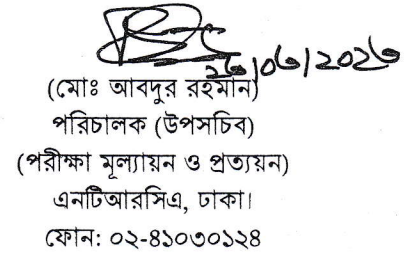 ২৬/০৬/২০২৬
(মোঃ আবদুর রহমান)
পরিচালক (উপসচিব)
(পরীক্ষা মূল্যায়ন ও প্রত্যয়ন)
এনটিআরসিএ, ঢাকা।
ফোন: ০২-৪১০৩০১২৪